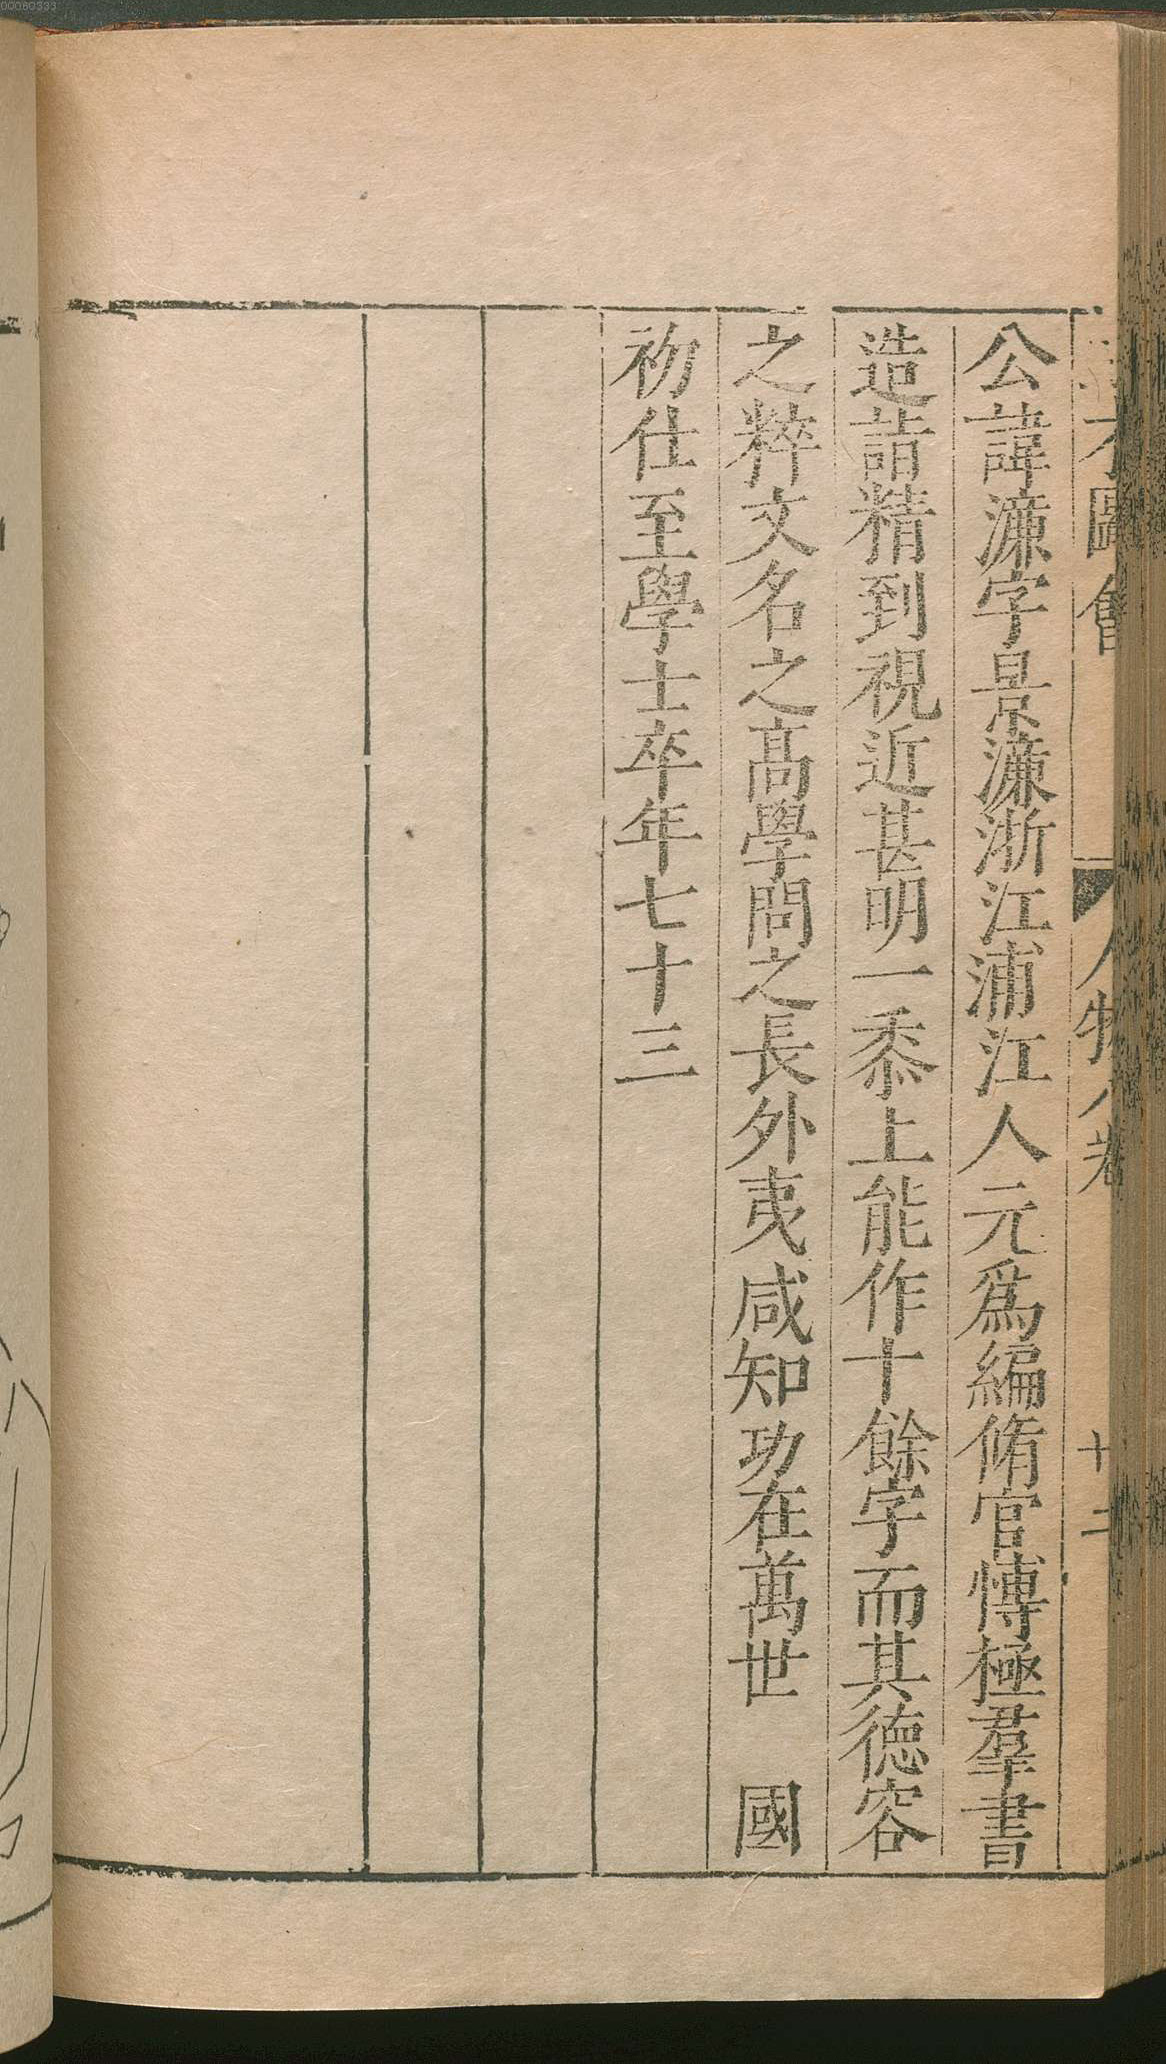 00060333
才圖會 人物八卷 十二
公諱濂字景濂浙江浦江人元爲編脩官愽極羣書
造詣精到視近甚明一黍上能作十餘字而其德容
之粹文名之髙學問之長外夷咸知功在萬世 國
初仕至學士卒年七十三